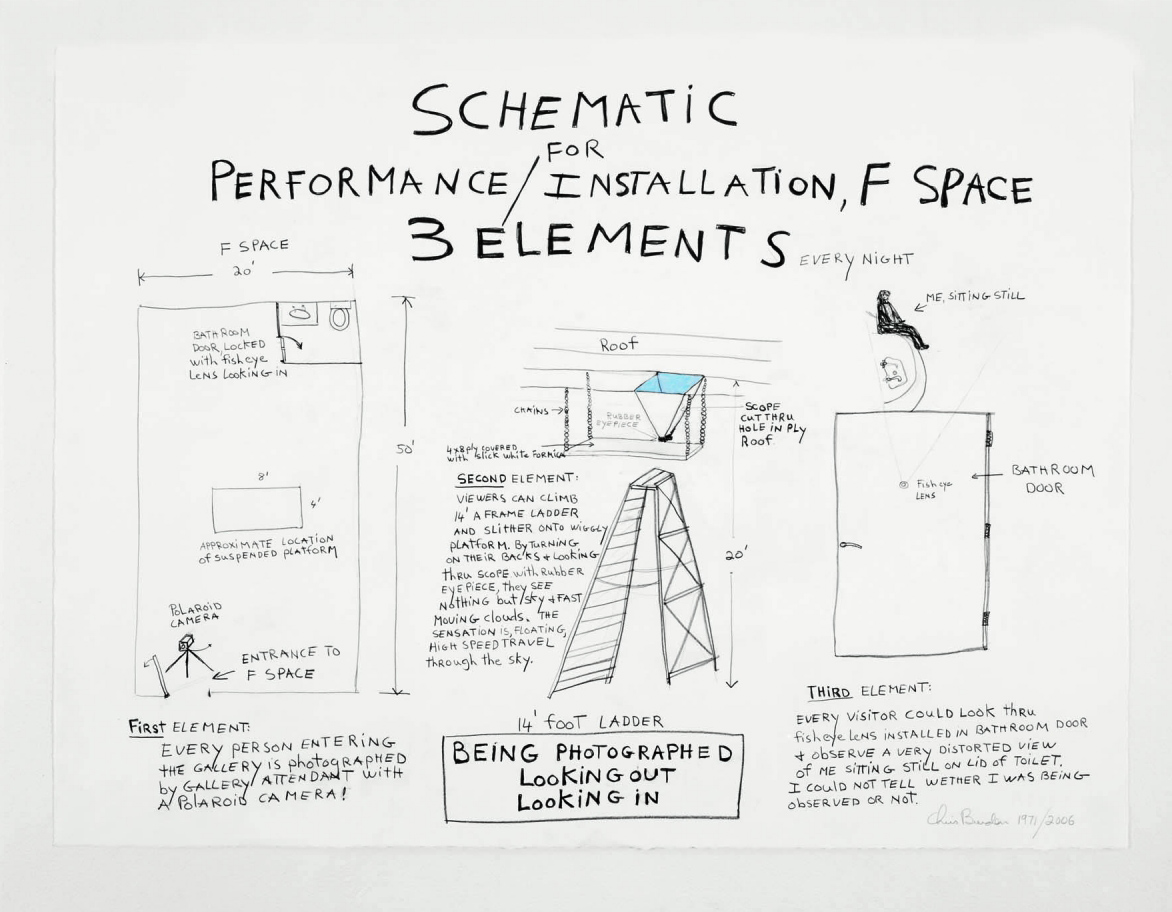 SCHEMATIC
FOR
PERFORMANCE/INSTALLATION, F SPACE
3 ELEMENTS
EVERY NIGHT
F SPACE
20'
BATHROOM
DOOR, LOCKED
with fisheye
LENS LOOKING IN
50'
8'
4'
APPROXIMATE LOCATION
of SUSPENDED PLATFORM
POLAROID
CAMERA
ENTRANCE TO
F SPACE
FIRST ELEMENT:
EVERY PERSON ENTERING
THE GALLERY IS photographed
by GALLERY ATTENDANT with
A POLAROID CAMERA!
Roof
CHAINS
RUBBER
EYEPIECE
SCOPE
CUT THRU
HOLE IN PLY
Roof
4x8 ply covered
with slick white formica
SECOND ELEMENT:
VIEWERS CAN CLIMB
14' A FRAME LADDER
AND SLITHER ONTO WIGGLY
PLATFORM. By TURNING
ON THEIR BACKS + LOOKING
thru SCOPE with Rubber
EYEPIECE, they SEE
NOTHING but sky + FAST
MOVING clouds. THE
SENSATION IS, FLOATING,
HIGH SPEED TRAVEL
through the sky.
20'
14' foot LADDER
BEING PHOTOGRAPHED
LOOKING OUT
LOOKING IN
ME, SITTING STILL
Fisheye
LENS
BATHROOM
DOOR
THIRD ELEMENT:
EVERY VISITOR COULD LOOK THRU
fisheye LENS INSTALLED IN BATHROOM DOOR
+ OBSERVE A VERY DISTORTED VIEW
of ME SITTING STILL ON LID of TOILET.
I COULD NOT TELL WETHER I WAS BEING
OBSERVED OR NOT.
Chris Burden 1971/2006